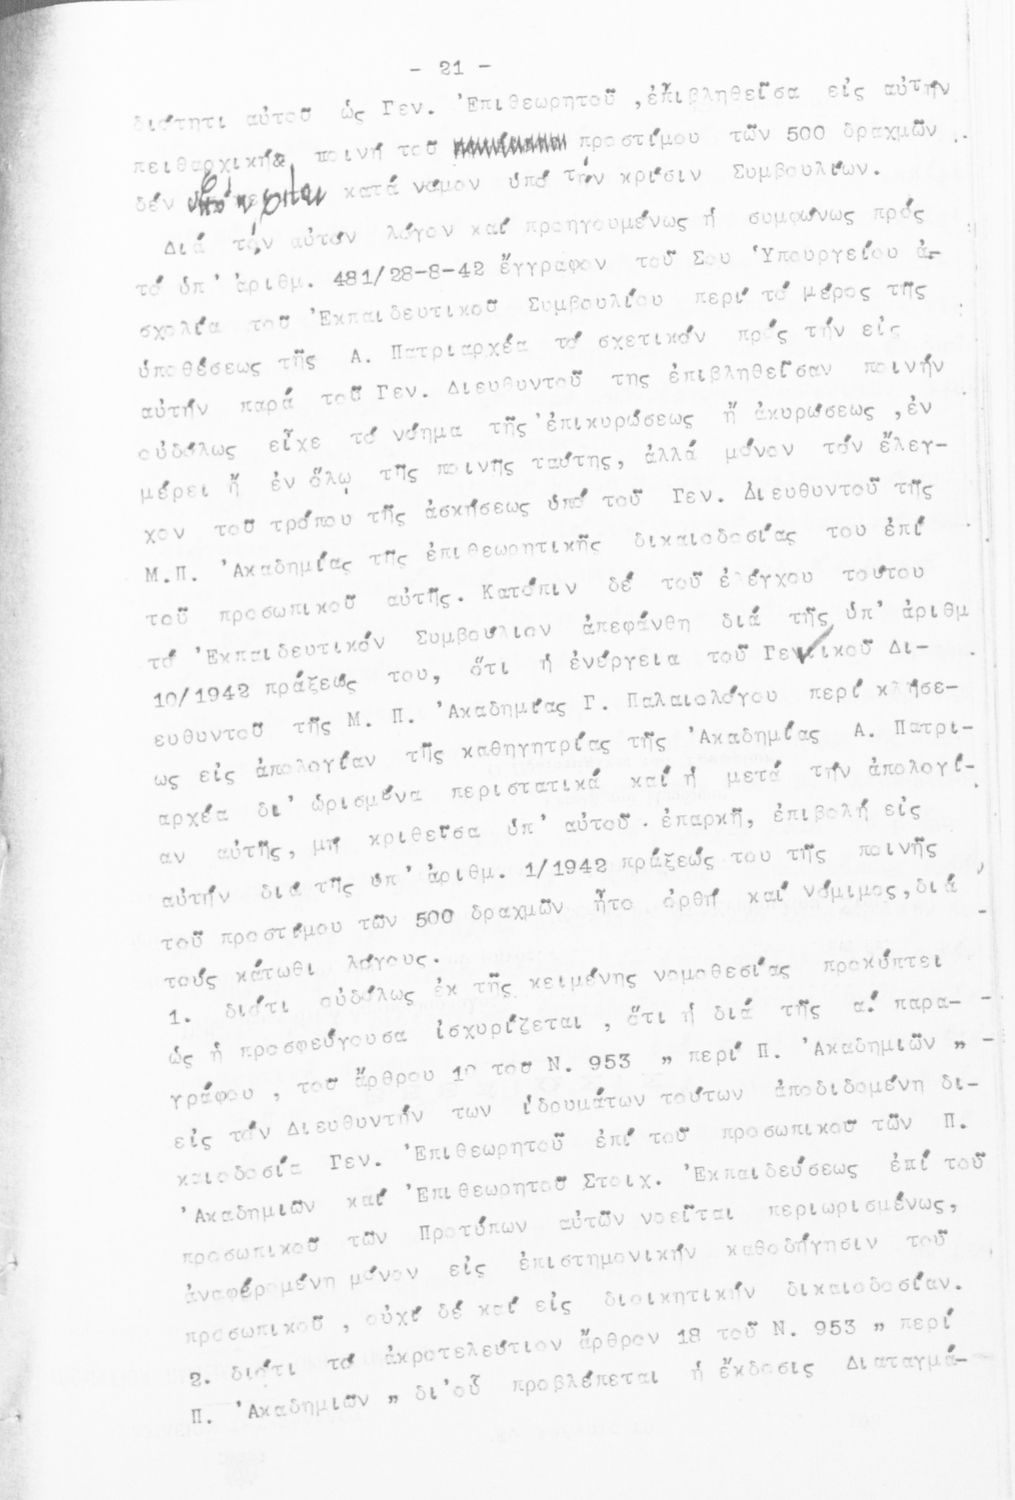 - 21 -
διότητι αὐτοῦ ὡς Γεν. Ἐπιθεωρητοῦ, ἐπιβληθεῖσα εἰς αὐτήν
πειθαρχική ποινή τοῦ προστίμου τῶν 500 δραχμῶν
δέν ὑπόκειται κατά νόμον ὑπό τήν κρίσιν Συμβουλίων.
Διά τόν αὐτόν λόγον καί προηγουμένως ἡ συμφώνως πρός
τό ὑπ' ἀριθμ. 481/28-8-42 ἔγγραφον τοῦ Σου Ὑπουργείου ἀ-
σχολία τοῦ Ἐκπαιδευτικοῦ Συμβουλίου περί τό μέρος τῆς
ὑποθέσεως τῆς Α. Πατριαρχέα τό σχετικόν πρός τήν εἰς
αὐτήν παρά τοῦ Γεν. Διευθυντοῦ της ἐπιβληθεῖσαν ποινήν
οὐδόλως εἶχε τό νόημα τῆς ἐπικυρώσεως ἤ ἀκυρώσεως, ἐν
μέρει ἤ ἐν ὅλῳ τῆς ποινῆς ταύτης, ἀλλά μόνον τόν ἔλεγ-
χον τοῦ τρόπου τῆς ἀσκήσεως ὑπό τοῦ Γεν. Διευθυντοῦ τῆς
Μ.Π. Ἀκαδημίας τῆς ἐπιθεωρητικῆς δικαιοδοσίας του ἐπί
τοῦ προσωπικοῦ αὐτῆς. Κατόπιν δέ τοῦ ἐλέγχου τούτου
τό Ἐκπαιδευτικόν Συμβούλιον ἀπεφάνθη διά τῆς ὑπ' ἀριθμ
10/1942 πράξεώς του, ὅτι ἡ ἐνέργεια τοῦ Γενικοῦ Δι-
ευθυντοῦ τῆς Μ. Π. Ἀκαδημίας Γ. Παλαιολόγου περί κλήσε-
ως εἰς ἀπολογίαν τῆς καθηγητρίας τῆς Ἀκαδημίας Α. Πατρι-
αρχέα δι' ὡρισμένα περιστατικά καί ἡ μετά τήν ἀπολογί-
αν αὐτῆς, μή κριθεῖσα ὑπ' αὐτοῦ. ἐπαρκῆ, ἐπιβολή εἰς
αὐτήν διά τῆς ὑπ' ἀριθμ. 1/1942 πράξεώς του τῆς ποινῆς
τοῦ προστίμου τῶν 500 δραχμῶν ἦτο ὀρθή καί νόμιμος, διά
τούς κάτωθι λόγους.
1. διότι οὐδόλως ἐκ τῆς κειμένης νομοθεσίας προκύπτει
ὡς ἡ προσφεύγουσα ἰσχυρίζεται, ὅτι ἡ διά τῆς α΄ παρα-
γράφου, τοῦ ἄρθρου 1ο τοῦ Ν. 953 „ περί Π. Ἀκαδημιῶν „
εἰς τόν Διευθυντήν των ἱδρυμάτων τούτων ἀποδιδομένη δι-
καιοδοσία Γεν. Ἐπιθεωρητοῦ ἐπί τοῦ προσωπικοῦ τῶν Π.
Ἀκαδημιῶν καί Ἐπιθεωρητοῦ Στοιχ. Ἐκπαιδεύσεως ἐπί τοῦ
προσωπικοῦ τῶν Προτύπων αὐτῶν νοεῖται περιωρισμένως,
ἀναφερομένη μόνον εἰς ἐπιστημονικήν καθοδήγησιν τοῦ
προσωπικοῦ, οὐχί δέ καί εἰς διοικητικήν δικαιοδοσίαν.
2. διότι τό ἀκροτελεύτιον ἄρθρον 18 τοῦ Ν. 953 „ περί
Π. Ἀκαδημιῶν „ δι' οὗ προβλέπεται ἡ ἔκδοσις Διαταγμά-